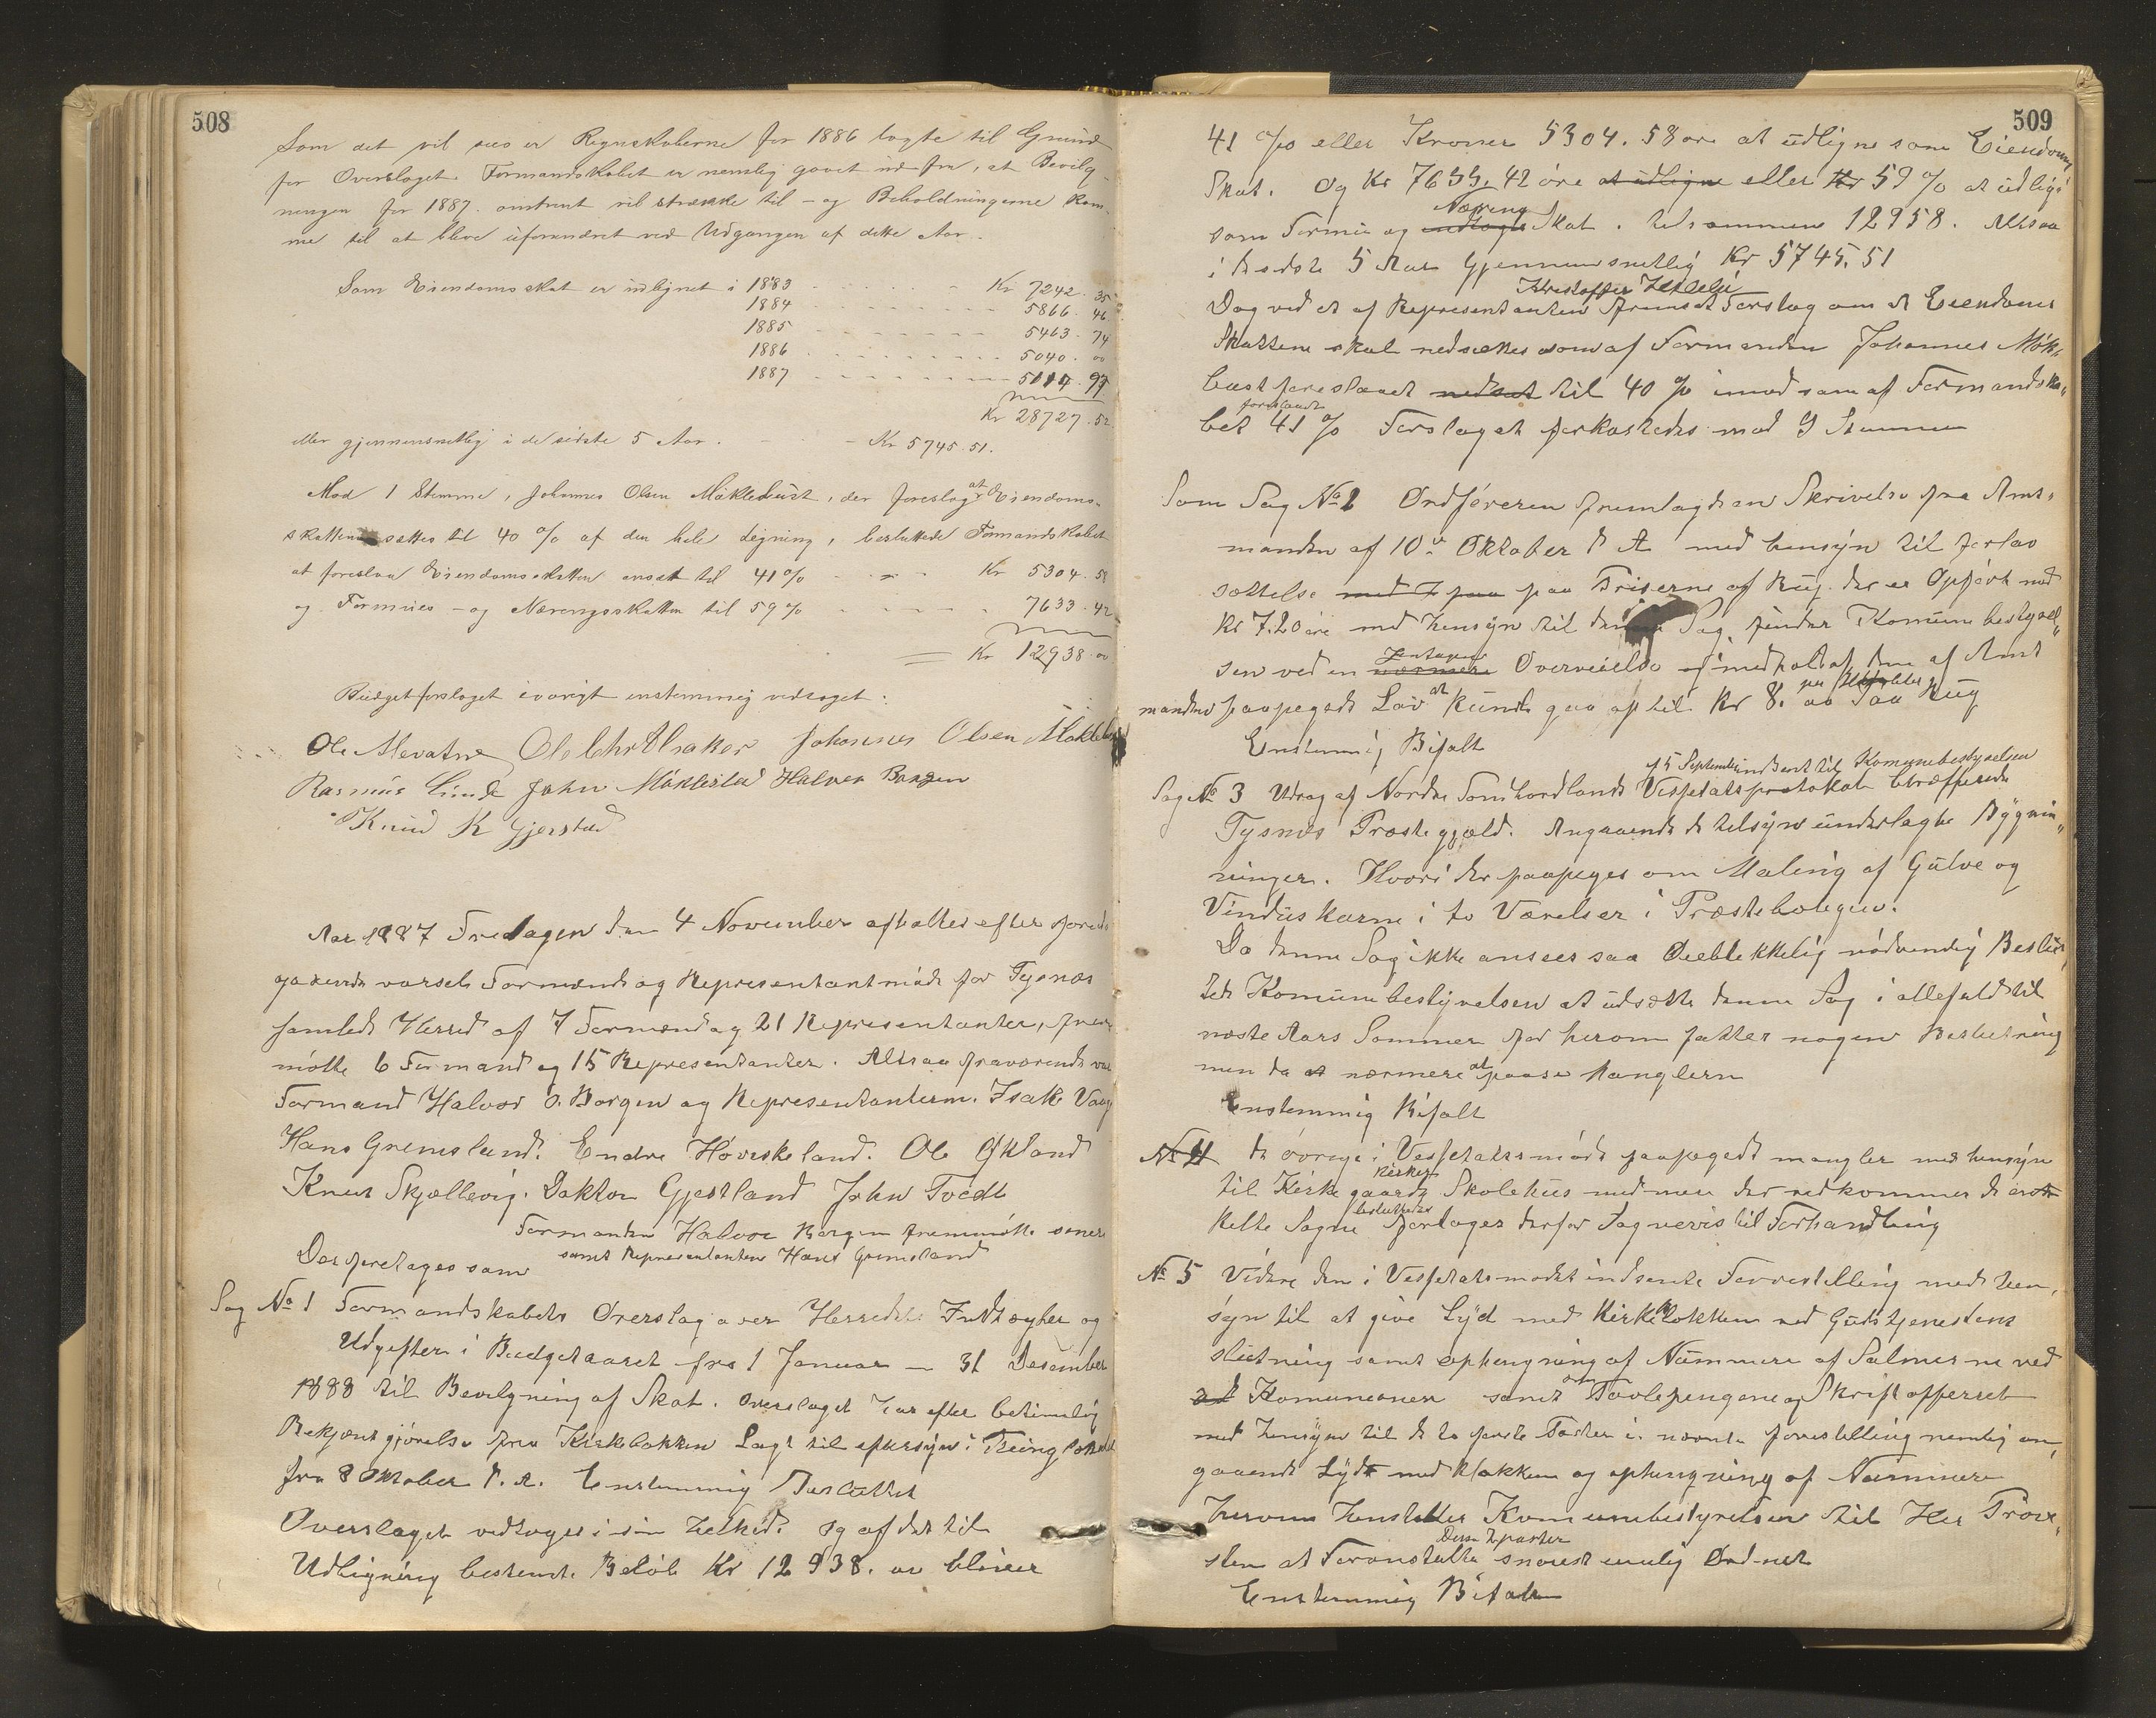 508
Som det vil sees er Regnskaberne for 1886 lagte til Grund
for Overslaget. Formandskabet er nemlig gaaet ud fra, at Bevilg-
ningen for 1887 omtrent vil strække til – og Beholdningerne kom-
me til at blive uforandret ved Udgangen af dette Aar.
Som Eiendomsskat er udlignet i 1883 Kr 7242. 35
1884 5866. 46
1885 5463. 74
1886 5040. 00
1887 5114. 97
Kr 28727. 52
eller gjennemsnitlig i de sidste 5 Aar. – Kr 5745. 51.
Mod 1 Stemme, Johannes Olsen Møklebust, der foreslog at Eiendoms-
skatten sættes til 40 % af den hele Ligning, besluttede Formandskabet
at foreslaa Eiendomsskatten ansat til 41 % Kr 5304. 58
og Formues- og Næringsskatten til 59 % 7633. 42
= Kr 12938. 00
Budgetforslaget iøvrigt enstemmig vedtaget:
Ole Alevatne Ole Chr Johannes Olsen Møklebust
Rasmus Lunde John Møklestad Halvor Borgen
Knud K Gjerstad
Aar 1887 Fredagen den 4 November afholtes efter fored
gaaende varsel Formænds og Representantmøde for Tysnæs
samlede Herred af 7 Formænd og 21 Representanter, frem
møtte 6 Formænd og 15 Representanter. Altsaa fraværende var
Formand Halvor O. Borgen og Representanterne. Isak Vaag
Hans Grimsland. Endre Høviskeland. Ole Økland
Knut Skjellevig. Doktor Gjestland John Tvedt
Formanden Halvor Borgen fremmøtte senere
samt Representanten Hans Grimsland
Der foretages som
Sag No 1 Formandskabets Overslag over Herredets Indtægter og
Udgifter i Budgetaaret fra 1 Januar – 31 Desember
1888 til Bevilgning af Skat. Overslaget har efter betimelig
Bekjentgjørelse fra Kirkebakken Lagt til eftersyn i Tinglokalet
fra 8 Oktober d. A. Enstemmig Besluttet
Overslaget vedtoges i sin helhed. Og af det til
Udligning bestemte Beløb Kr 12938. 00 bliver
509
41 % eller Kroner 5304. 58 øre at udligne som Eiendoms
Skat. Og Kr 7633. 42 øre at udligne eller Kr 59 % at udligne
som Formue og Nærings Skat. tilsammen 12958. Altsaa
i de sidste 5 Aar Gjennemsnitlig Kr 5745. 51
Dog ved et af Representanten Kristoffer fremsat Forslag om at Eiendoms
Skatten skal nedsættes som af Formanden Johannes Møkle
bust foreslaaet nedsat til 40 % imod som af Formandska„
bet foreslaaet 41 % Forslaget forkastedes mod 9 Stemmer
Som Sag No 2 Ordføreren fremlagde en Skrivelse fra Amt„
manden af 10de Oktober d A med hensyn til forlav
sættelse paa Priserne af Rug. der er Opført med
Kr 7.20 øre med hensyn til denne Sag, finder Komunebestyrel„
sen ved en Overveielse af medhold af den af Amt
manden paapegede Lov at kunde gaa op til Kr 8. 00 Rug
Enstemmig Bifalt
Sag No 3 Udrag af Nordre Søndhordlands Vesfetatsprotokol 15 September indsent til Komunebestyrelsen betræffende
Tysnæs Præstegjæld. Angaaende de tilsyn underlagte Bygnin„
ninger. Hvori der paapeges om Maling af Gulve og
Vindus karme i to Værelser i Præsteboligen.
Da denne Sag ikke ansees saa Øieblikkelig nødvendig Beslut„
tede Komunebestyrelsen at udsætte denne Sag i allefald til
næste Aars Sommer før herom fattes nogen Beslutning
men da at nærmere at paase Manglerne
Enstemmig Bifalt
No 4 De øvrige i Vesfetatsmøde paapegede mangler med hensyn
til Kirke Kirkegaarde Skolehus med mere der vedkommer de
kelte Sogne besluttedes foretages derfor Sognevis til Forhandling
No 5 Videre den i Vesfetatsmødet indsente Forestilling med hen„
syn til at give Lyd med Kirkeklokken ved Gudstjenestens
slutning samt ophengning af Nummere af Salmerne ved
Komunionen samt om Tavlepengene og Skriftofferet
med hensyn til de to første Poster i nævnte forestilling nemlig an„
gaaende Lyde med Klokken og ophengning af Nummere
herom henstiller Komunebestyrelsen til Her Prov„
sten at Foranstalte snarest mulig Ordnet
Enstemmig Bifalt